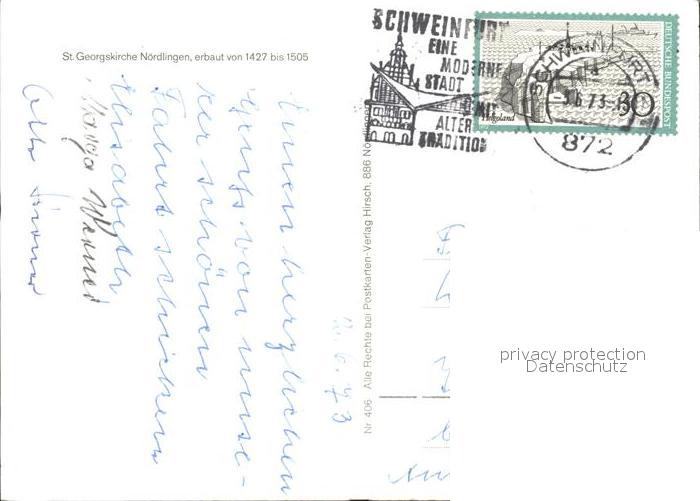 St. Georgskirche Nördlingen, erbaut von 1427 bis 1505
SCHWEINFURT
EINE
MODERNE
STADT
MIT
ALTER
TRADITION
SCHWEINFURT
6.73
872
DEUTSCHE BUNDESPOST
30
Helgoland
2.6.73
Einen herzlichen
Gruß von unse-
rer schönen
Fahrt schicken
Elisabeth
Werner
Nr 406 Alle Rechte bei Postkarten-Verlag Hirsch, 886 Nördlingen
privacy protection
Datenschutz